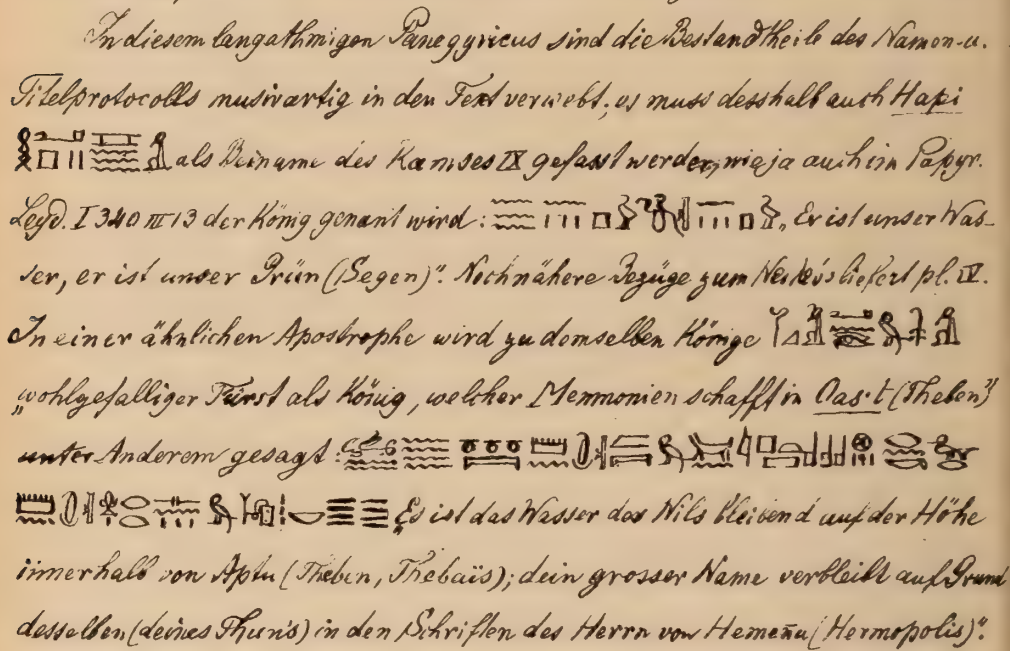 In diesem langathmigen Panegyricus sind die Bestandtheile des Namen- u.
Titelprotocolls musivartig in den Text verwebt; es muss desshalb auch Hapi
als Beiname des Ramses IX gefasst werden, wie ja auch im Papyr.
Leyd. I 340 III 13 der König genant wird: „Er ist unser Was-
ser, er ist unser Grün (Segen)“. Noch nähere Bezüge zum liefert pl. IV.
In einer ähnlichen Apostrophe wird zu demselben Könige
„wohlgefalliger Fürst als König, welcher Memnonien schafft in Oas.t (Theben)“
unter Anderem gesagt: 
„Es ist das Wasser des Nils bleibend auf der Höhe
innerhalb von Aptu (Theben, Thebaïs); dein grosser Name verbleibt auf Grund
desselben (deines Thun's) in den Schriften des Herrn von Hemenu (Hermopolis)“.